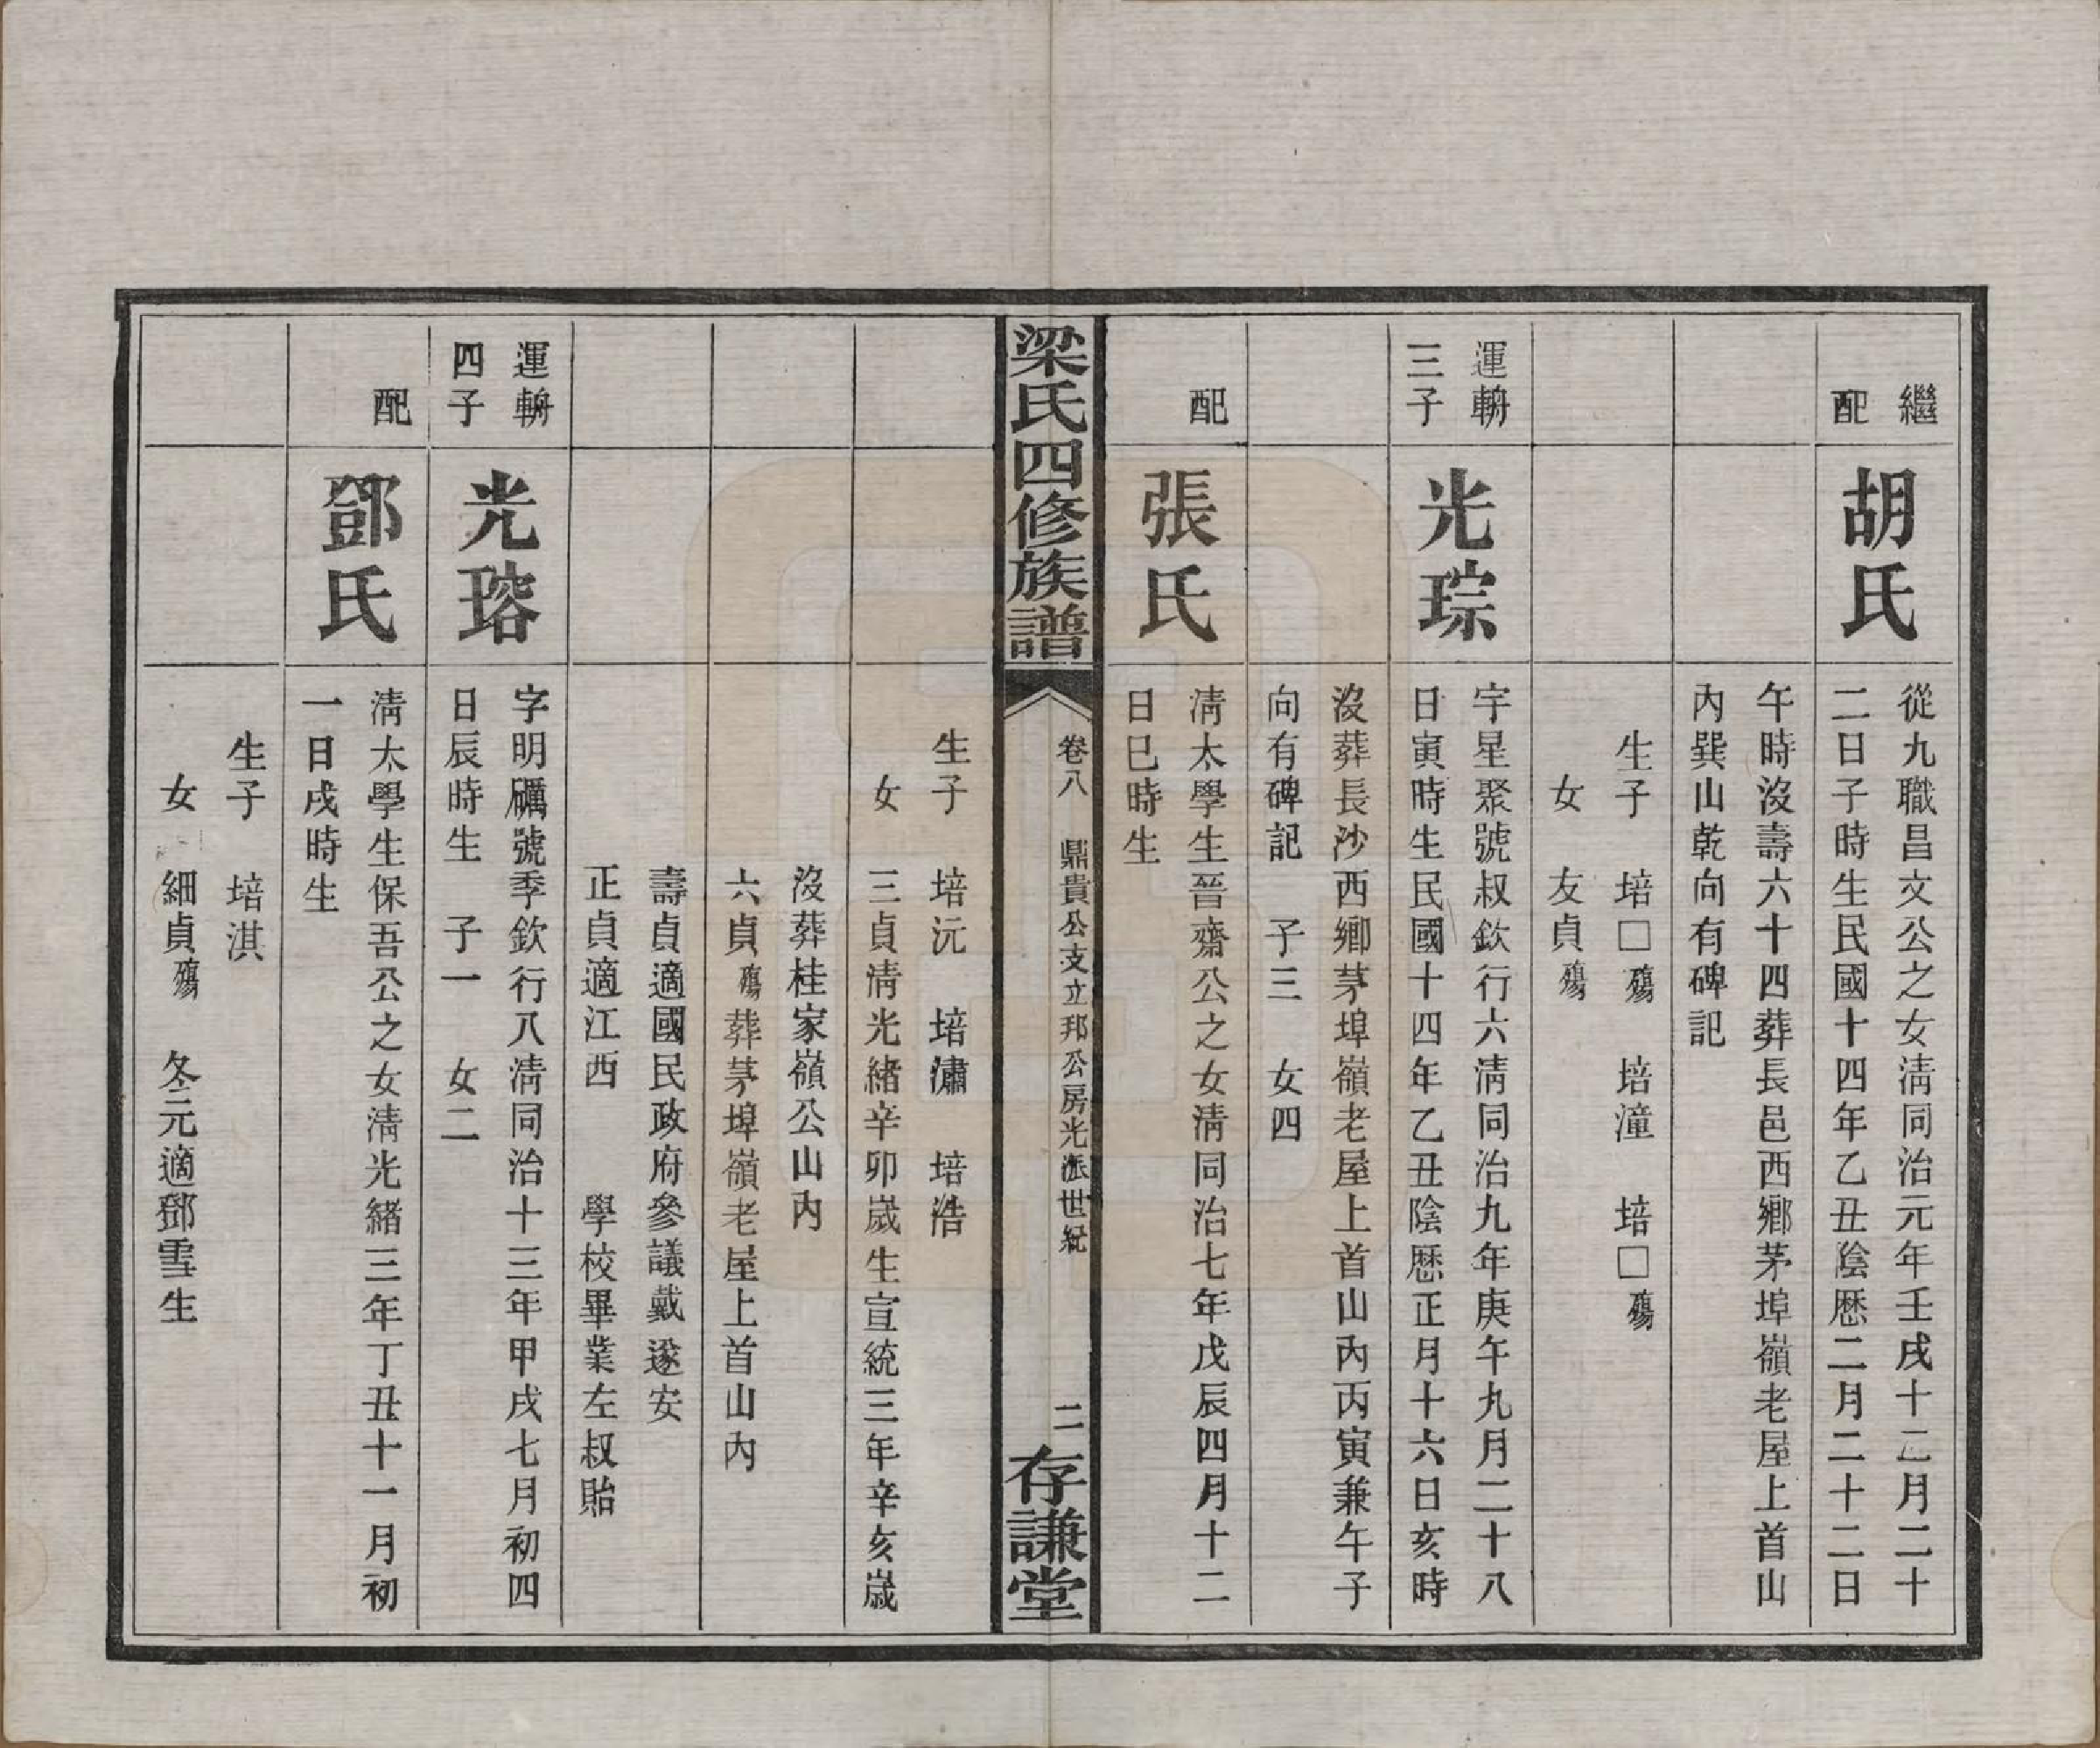 繼
配
胡氏
從九職昌文公之女淸同治元年壬戌十二月二十
二日子時生民國十四年乙丑陰歷二月二十二日
午時沒壽六十四葬長邑西鄉茅埠嶺老屋上首山
內巽山乾向有碑記
生子　培□殤　培潼　培□殤
女　友貞殤
運輈
三子
光琮
字星聚號叔欽行六淸同治九年庚午九月二十八
日寅時生民國十四年乙丑陰歷正月十六日亥時
沒葬長沙西鄉茅埠嶺老屋上首山內丙寅兼午子
向有碑記　子三　女四
配
張氏
淸太學生晉齋公之女淸同治七年戊辰四月十二
日巳時生
梁氏四修族譜
卷八　鼎貴公支立邦公房光派世紀
二
存謙堂
生子　培沅　培潚　培浩
女　三貞淸光緒辛卯歲生宣統三年辛亥歲
沒葬桂家嶺公山內
六貞殤葬茅埠嶺老屋上首山內
壽貞適國民政府參議戴邃安
正貞適江西　學校畢業左叔貽
運輈
四子
光瑢
字明礪號季欽行八淸同治十三年甲戌七月初四
日辰時生　子一　女二
配
鄧氏
淸太學生保吾公之女淸光緒三年丁丑十一月初
一日戌時生
生子　培淇
女　細貞殤　冬元適鄧雪生